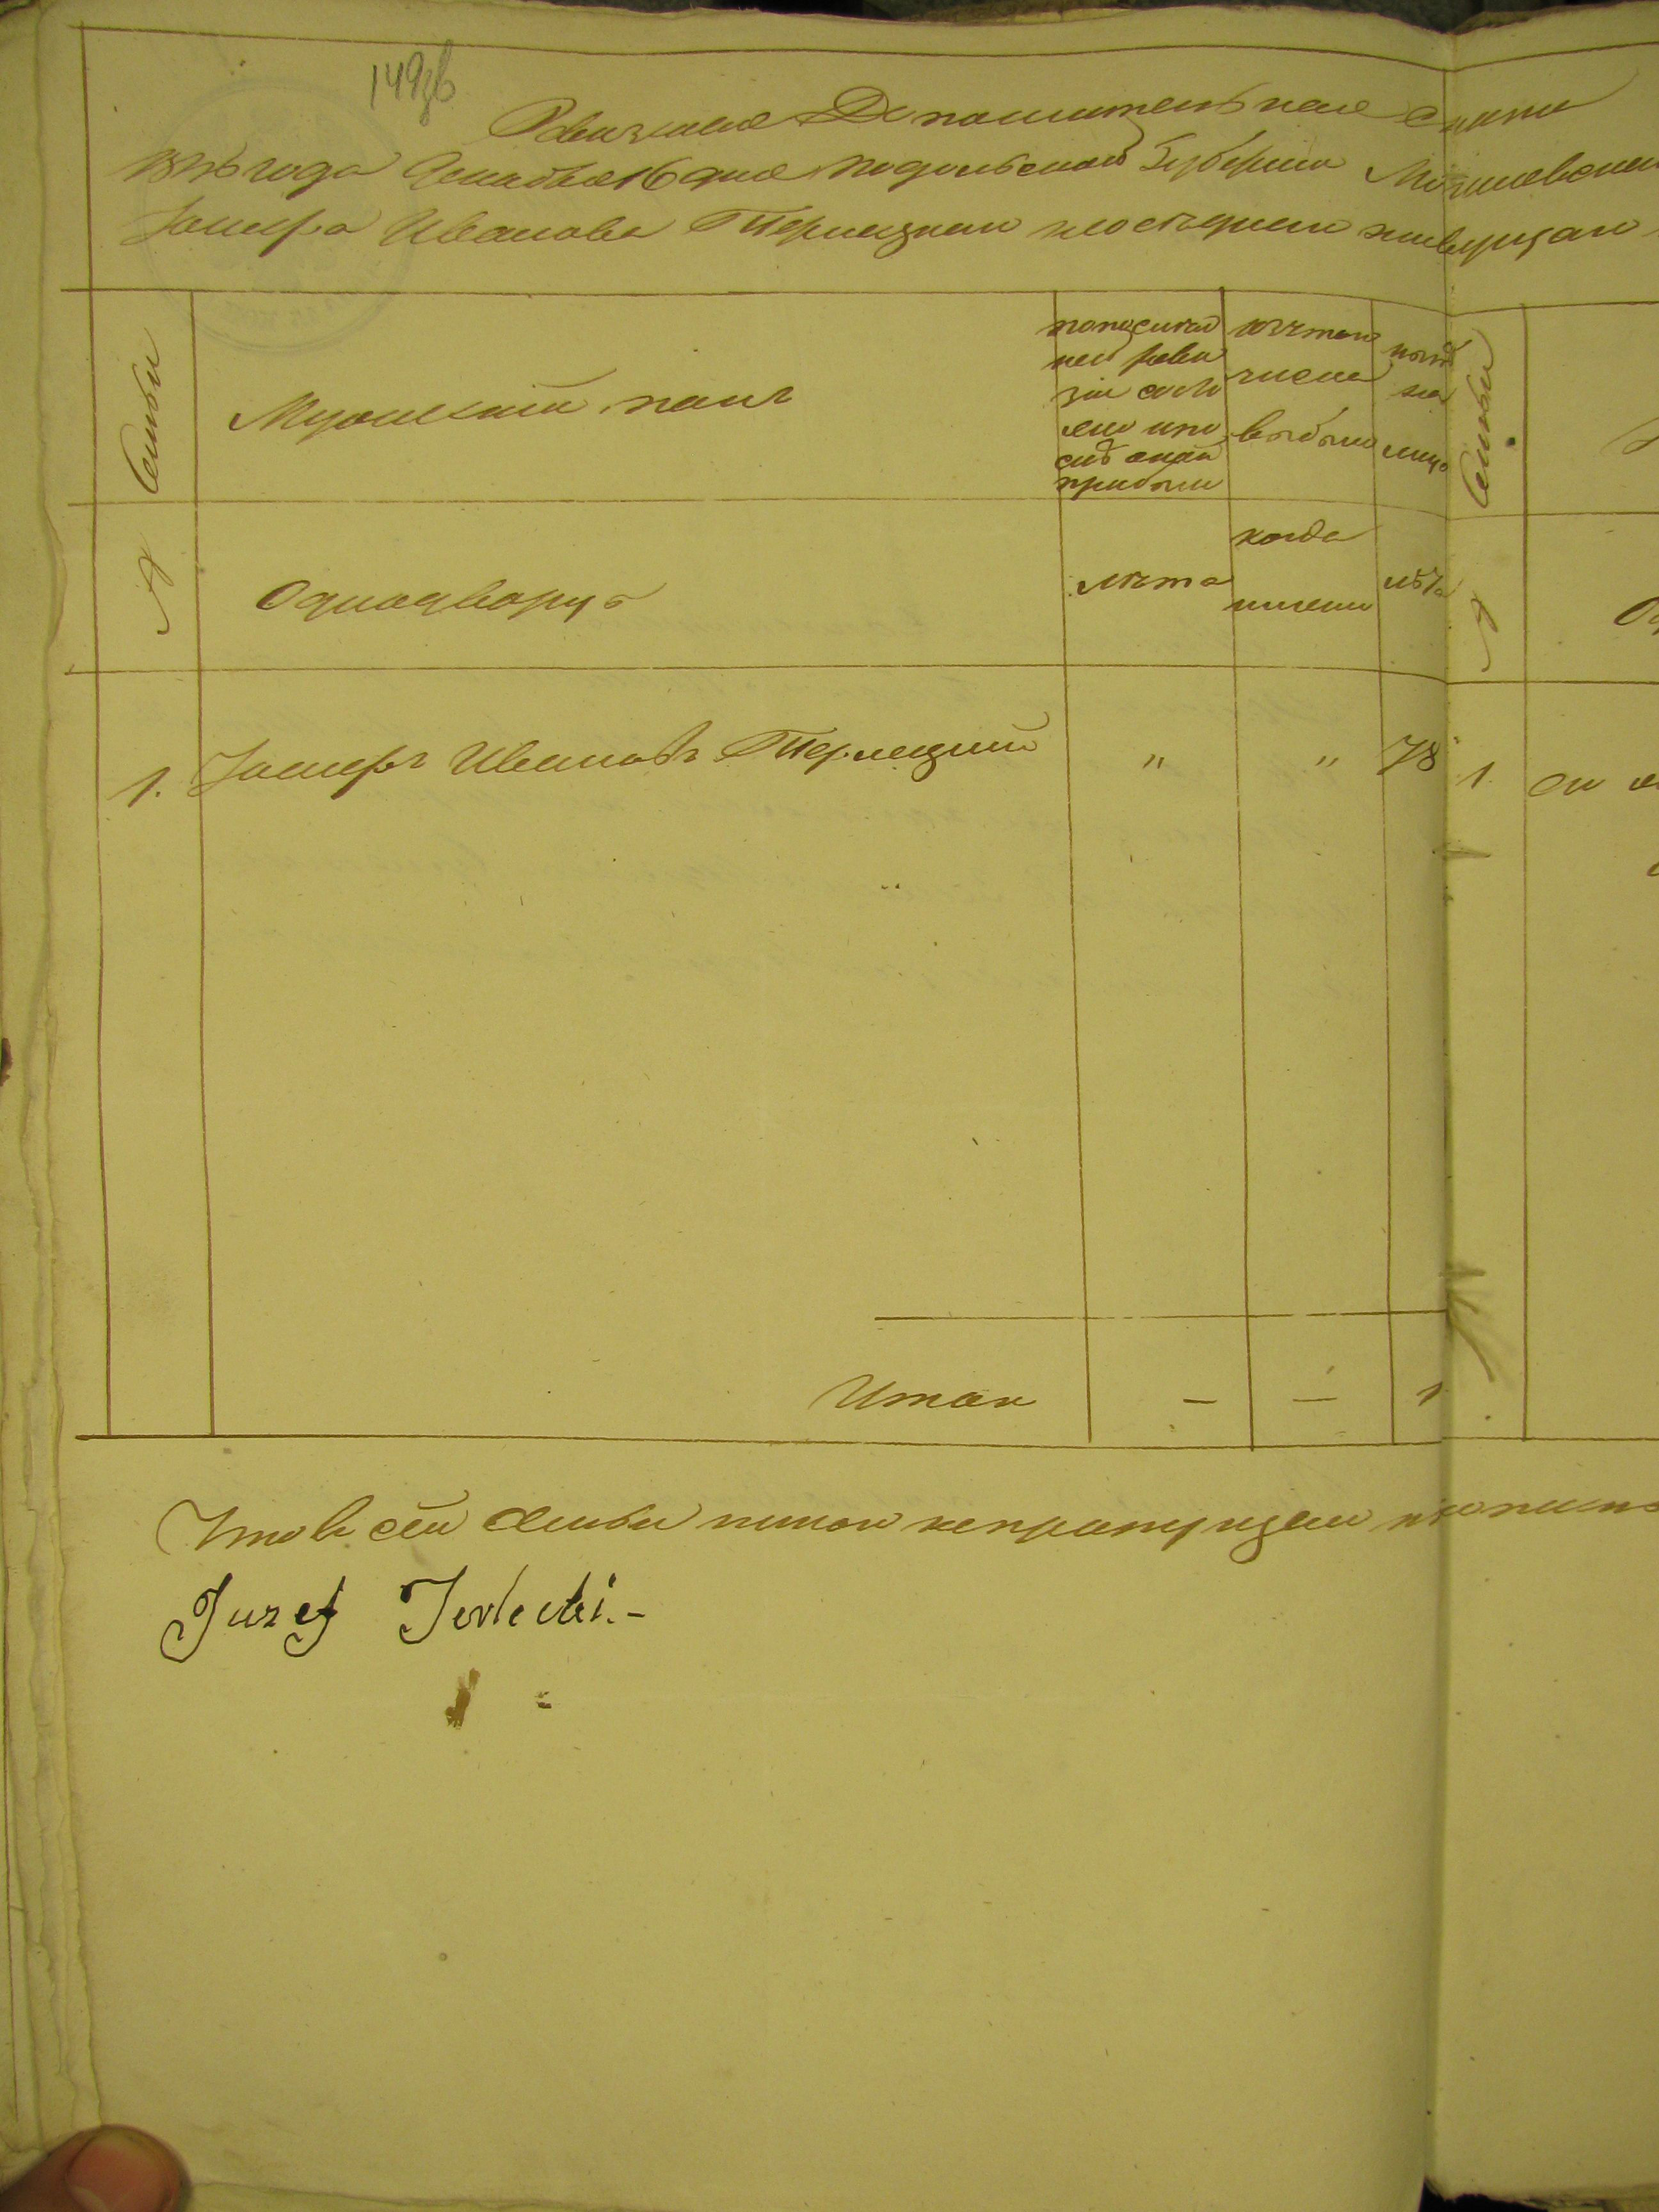 149зв
Ревизская Дополнительная Сказка
года Декабря 16 дня Подольской Губернии Могилевского
Іосифа Иванова Терлецкаго жительствующаго
Семьи
Мужеский полъ
по последней ревизіи состояло или после оной прибыло
изъ того числа выбыло
ныне на лицо
Семьи
№
Однодворцъ
лета
когда именно
лета
№
1. Іосифъ Ивановъ Терлецкий " " 78 1.
Итого — — 1
Что в сей семьи никого не пропущено
Juzef Terlecki.-